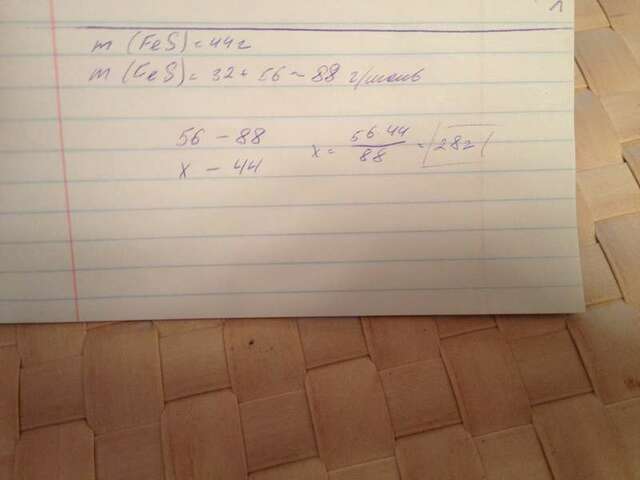 m (FeS) = 44г
m (FeS) = 32 + 56 = 88 г/моль
56 - 88
x - 44
x = 56·44/88 = 28г